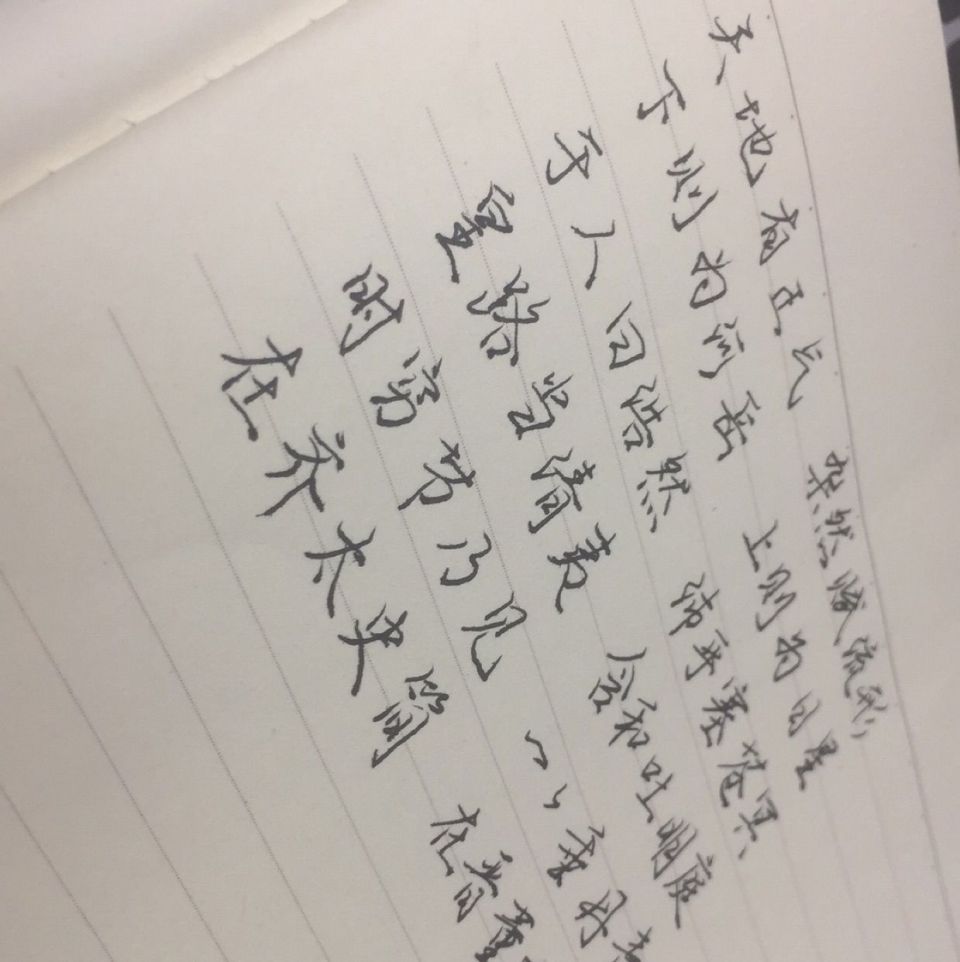 天地有正气 杂然赋流形
下则为河岳 上则为日星
于人曰浩然 沛乎塞苍冥
皇路当清夷 含和吐明庭
时穷节乃见 一一垂丹青
在齐太史简 在晋董